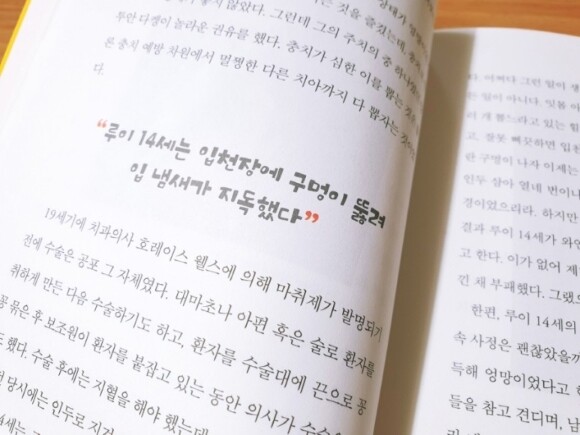 것을 즐겼는데,
않았다. 그런데 그의 주치의 중 하나였
투안 다켕이 놀라운 권유를 했다. 충치가 심한 이를 뽑는 것은
론 충치 예방 차원에서 멀쩡한 다른 치아까지 다 뽑자는 것이
다.
“루이 14세는 입천장에 구멍이 뚫려
입 냄새가 지독했다”
19세기에 치과의사 호레이스 웰스에 의해 마취제가 발명되기
전에 수술은 공포 그 자체였다. 대마초나 아편 혹은 술로 환자를
취하게 만든 다음 수술하기도 하고, 환자를 수술대에 끈으로 꽁
꽁 묶은 후 보조원이 환자를 붙잡고 있는 동안 의사가 수술을
도 했다. 수술 후에는 지혈을 해야 했는데
당시에는 인두로 지
4세는
다. 어쩌다 그런 일이
는 일이 아니다. 잇몸
러 개 뽑느라고 있는 힘
고, 잘못 삐끗하면 입천
란 구멍이 나자 이제는
인두 살아 열네 번이나
경이었으리라. 하지만
결과 루이 14세가 와인
고 한다. 이가 없어 제
낀 채 부패했다. 그랬
한편, 루이 14세의
속 사정은 괜찮았을까
득해 엉망이었다고 한
들을 참고 견디며, 남